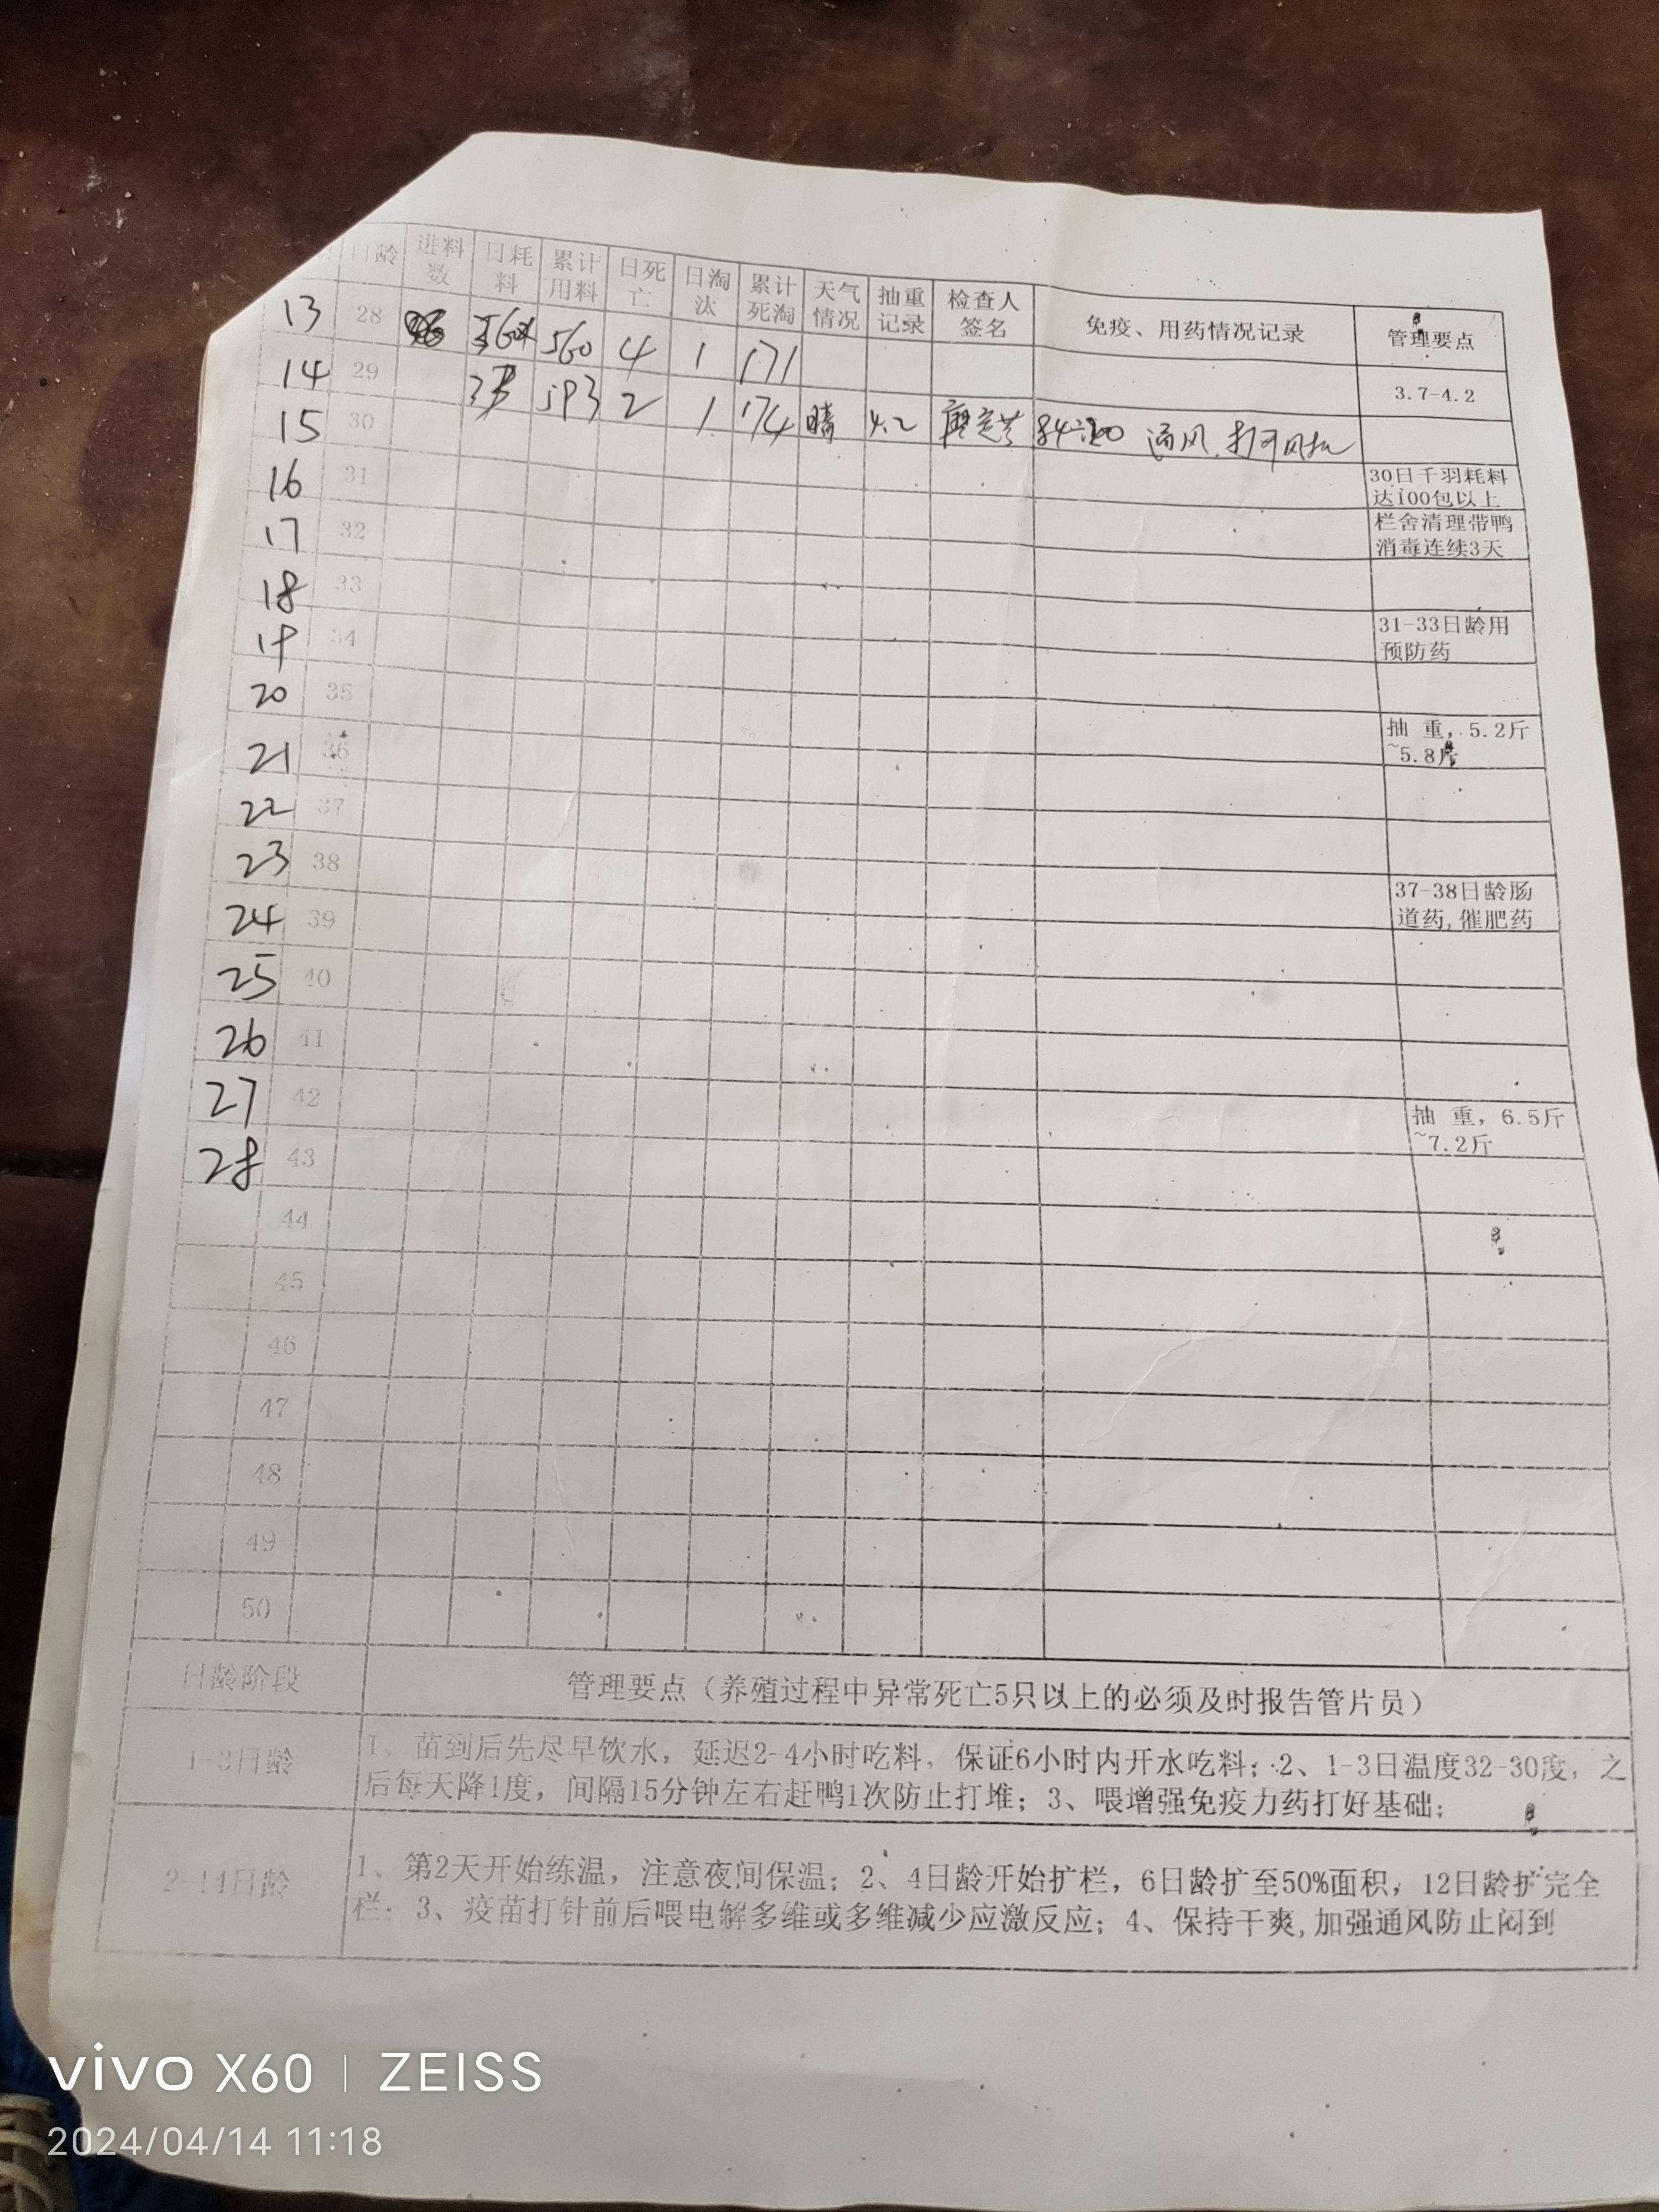 日龄 进料数 日耗料 累计用料 日死亡 日淘汰 累计死淘 天气情况 抽重记录 检查人签名 免疫、用药情况记录 管理要点
13 28 560 4 1 171
14 29 593 2 1 174 晴 4.2 84消 通风 打开风机 3.7-4.2
15 30
16 31 30日千羽耗料达100包以上
17 32 栏舍清理带鸭消毒连续3天
18 33
19 34 31-33日龄用预防药
20 35
21 36 抽 重, 5.2斤~5.8斤
22 37
23 38
24 39 37-38日龄肠道药,催肥药
25 40
26 41
27 42
28 43 抽 重, 6.5斤~7.2斤
44
45
46
47
48
49
50
日龄阶段 管理要点（养殖过程中异常死亡5只以上的必须及时报告管片员）
1-3日龄 1、苗到后先尽早饮水, 延迟2-4小时吃料, 保证6小时内开水吃料; 2、1-3日温度32-30度, 之
后每天降1度, 间隔15分钟左右赶鸭1次防止打堆; 3、喂增强免疫力药打好基础;
2-14日龄 1、第2天开始练温, 注意夜间保温; 2、4日龄开始扩栏, 6日龄扩至50%面积, 12日龄扩完全
栏; 3、疫苗打针前后喂电解多维或多维减少应激反应; 4、保持干爽,加强通风防止闷到
vivo X60 | ZEISS
2024/04/14 11:18